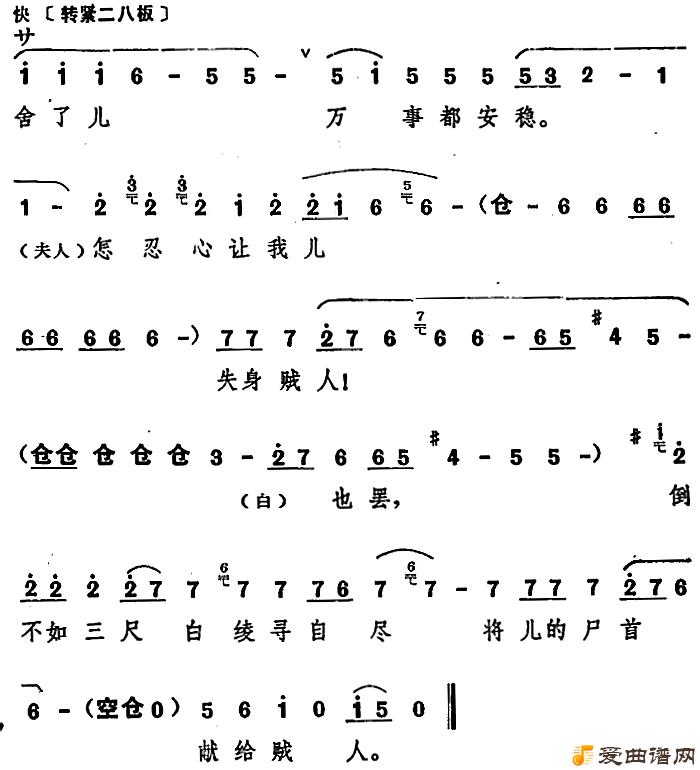 快〔转紧二八板〕
サ i i i 6 - 5 5 - ∨ 5 i 5 5 5 5 3 2 - 1
舍了儿 万 事都安稳。
1 - 2 3 2 3 2 i 2 2 i 6 5 6 - (仓 - 6 6 6 6
(夫人)怎 忍 心让我儿
6 6 6 6 6 -) 7 7 7 2 7 6 7 6 6 - 6 5 #4 5 -
失身贼人!
(仓仓 仓 仓 仓 3 - 2 7 6 6 5 #4 - 5 5 -) # i 2
(白) 也罢, 倒
2 2 2 2 7 7 6 7 7 7 6 7 6 7 - 7 7 7 7 2 7 6
不如三尺 白绫寻自 尽 将儿的尸首
6 - (空仓 0) 5 6 i 0 i 5 0
献给贼 人。
爱曲谱网